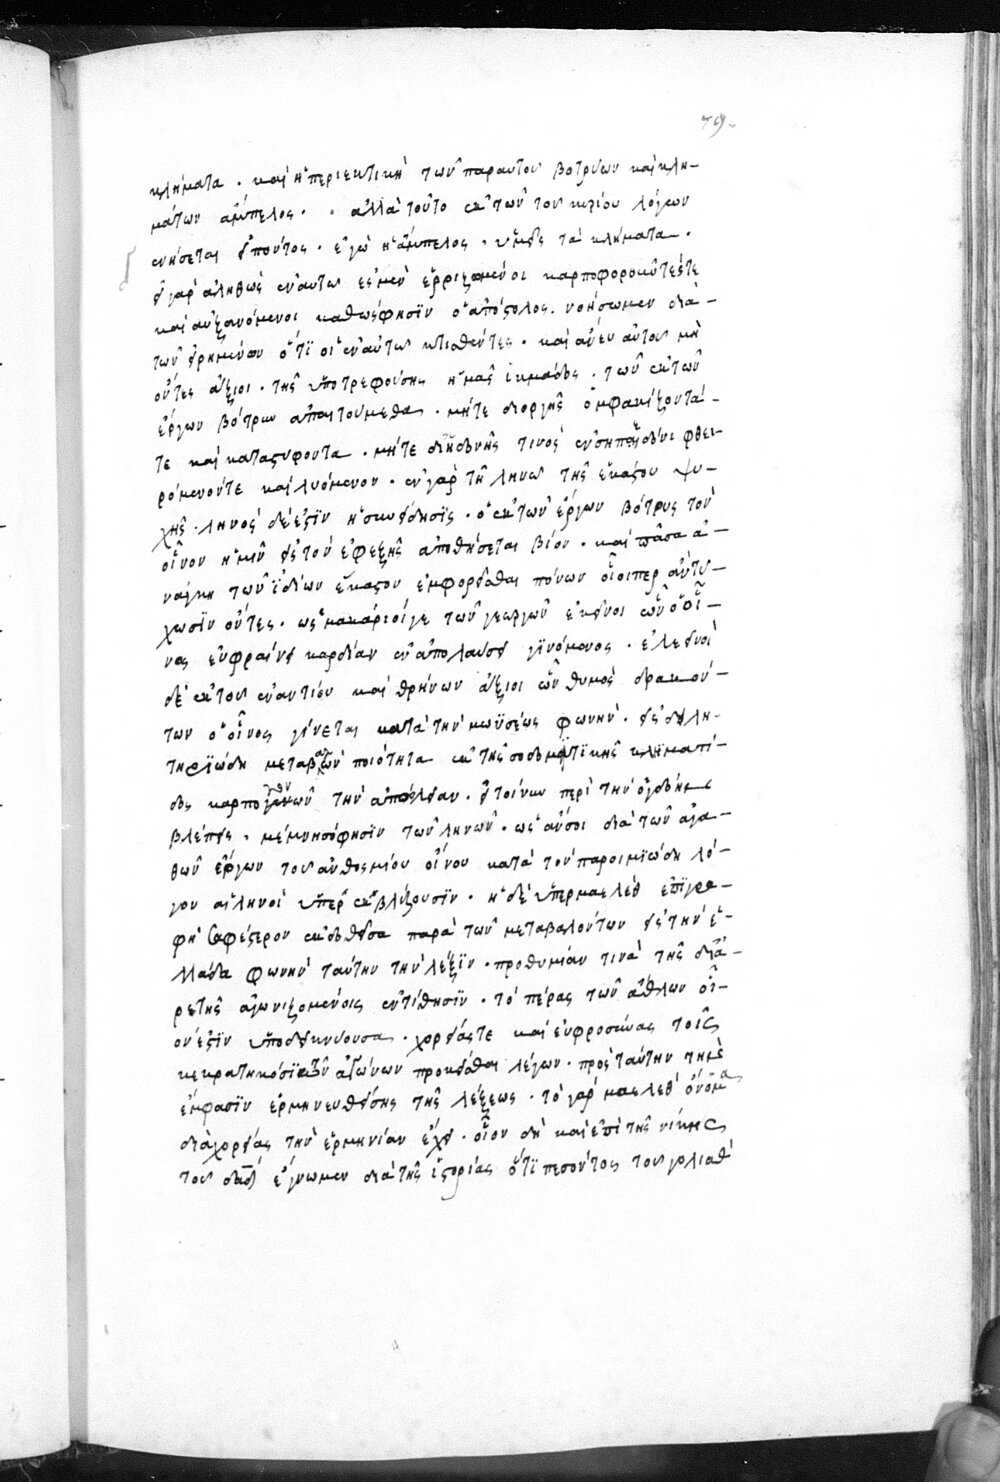 79.
κλήματα . καὶ ἡ περιεκτικὴ τῶν παρ αυτοῦ βοτρύων καὶ κλη-
μάτων ἄμπελος . . αλλὰ τοῦτο ἐκ τῶν τοῦ κυρίου λόγων
ἐνήσεται εἰπόντος . ἐγὼ ἡ ἄμπελος . ὑμεῖς τὰ κλήματα .
εἰ γὰρ ἀληθῶς ἐν αυτῶ ἐσμὲν ἐρριζωμένοι καρποφοροῦντές τε
καὶ αυξανόμενοι καθώς φησϊν ὁ απόστολος . νοήσωμεν διὰ-
τῶν εἰρημένων ὅτϊ οἱ ἐν αὐτῶ κτισθέντες . καὶ ἄνευ αὐτοῦ μὴ
ὄντες ἄξιοι . τῆς ὑποτρεφούσης ἡμᾶς ἰκμάδος . τῶν ἐκ τῶν
ἔργων βότρυν απαιτούμεθα . μήτε δι οργῆς ὀμφακίζοντά-
τε καὶ καταστύφοντα . μήτε δι ἡδονῆς τινὸς ἐν σηπεδόνι φθει-
ρόμενόντε καὶ λυόμενον . ἐν γὰρ τῆ ληνῶ τῆς ἑκάστου ψυ-
χῆς . ληνὸς δέ ἐστϊν ἡ συνείδησϊς . ὁ ἐκ τῶν ἔργων βότρυς τὸν
οἶνον ἡμῖν εἰς τὸν ἐφεξῆς ἀποθήσεται βίον . καὶ πᾶσα ἀ-
νάγκη τῶν ϊδίων ἕκαστον ἐμφορεῖσθαι πόνων οἷοιπερ ἂν τύ-
χωσϊν ὄντες . ὡς μακάριοίγε τῶν γεωργῶν ἐκεῖνοι ὧν ὁ οἶ-
νος εὐφραίνει καρδίαν ἐν ἀπολαύσει γϊνόμενος . ἐλεεινοὶ
δὲ ἐκ τοῦ ἐναντίου καὶ θρήνων ἄξιοι ὧν θυμὸς δρακόν-
των ὁ οἶνος γίνεται κατὰ τὴν μωϋσέως φωνὴν . εἰς δηλη-
τηρϊώδη μεταβαλὼν ποιότητα ἐκ τῆς σοδομϊτϊκῆς κληματί-
δος καρπογονῶν τὴν ἀπώλειαν . εἰ τοίνυν περὶ τὴν ὀγδόην
βλέπεις . μέμνησό φησϊν τῶν ληνῶν . ὡς ἂν σοι διὰ τῶν ἀγα-
θῶν ἔργων τοῦ ἀνθοσμίου οἴνου κατὰ τὸν παροιμϊώδη λό-
γον αἱ ληνοὶ ὑπερεκβλύζουσϊν . ἡ δὲ ὑπερμαελὲθ ἐπϊγρα-
φὴ σαφέστερον ἐκδοθεῖσα παρὰ τῶν μεταβαλόντων εἰς τὴν ἑ-
λλάδα φωνὴν ταύτην τὴν λέξϊν . προθυμίαν τινὰ τῆς δι ἀ-
ρετῆς ἀγωνιζομένοις ἐντίθησϊν . τὸ πέρας τῶν ἄθλων οἷ-
όν ἐστϊν ὑποδεικνύουσα . χορείας τε καὶ εὐφροσύνας τοῖς
κεκρατηκόσϊ τῶν ἀγώνων προκεῖσθαι λέγων . πρὸς ταύτην τὴν
ἔμφασϊν ἑρμηνευθείσης τῆς λέξεως . τὸ γὰρ μαελὲθ ὄνομα
διὰ χορείας τὴν ἑρμηνίαν ἔχει . οἷον δὴ καὶ ἐπὶ τῆς νίκης
τοῦ δαδ ἔγνωμεν διὰ τῆς ἱστορίας ὅτϊ πεσόντος τοῦ γολιὰθ